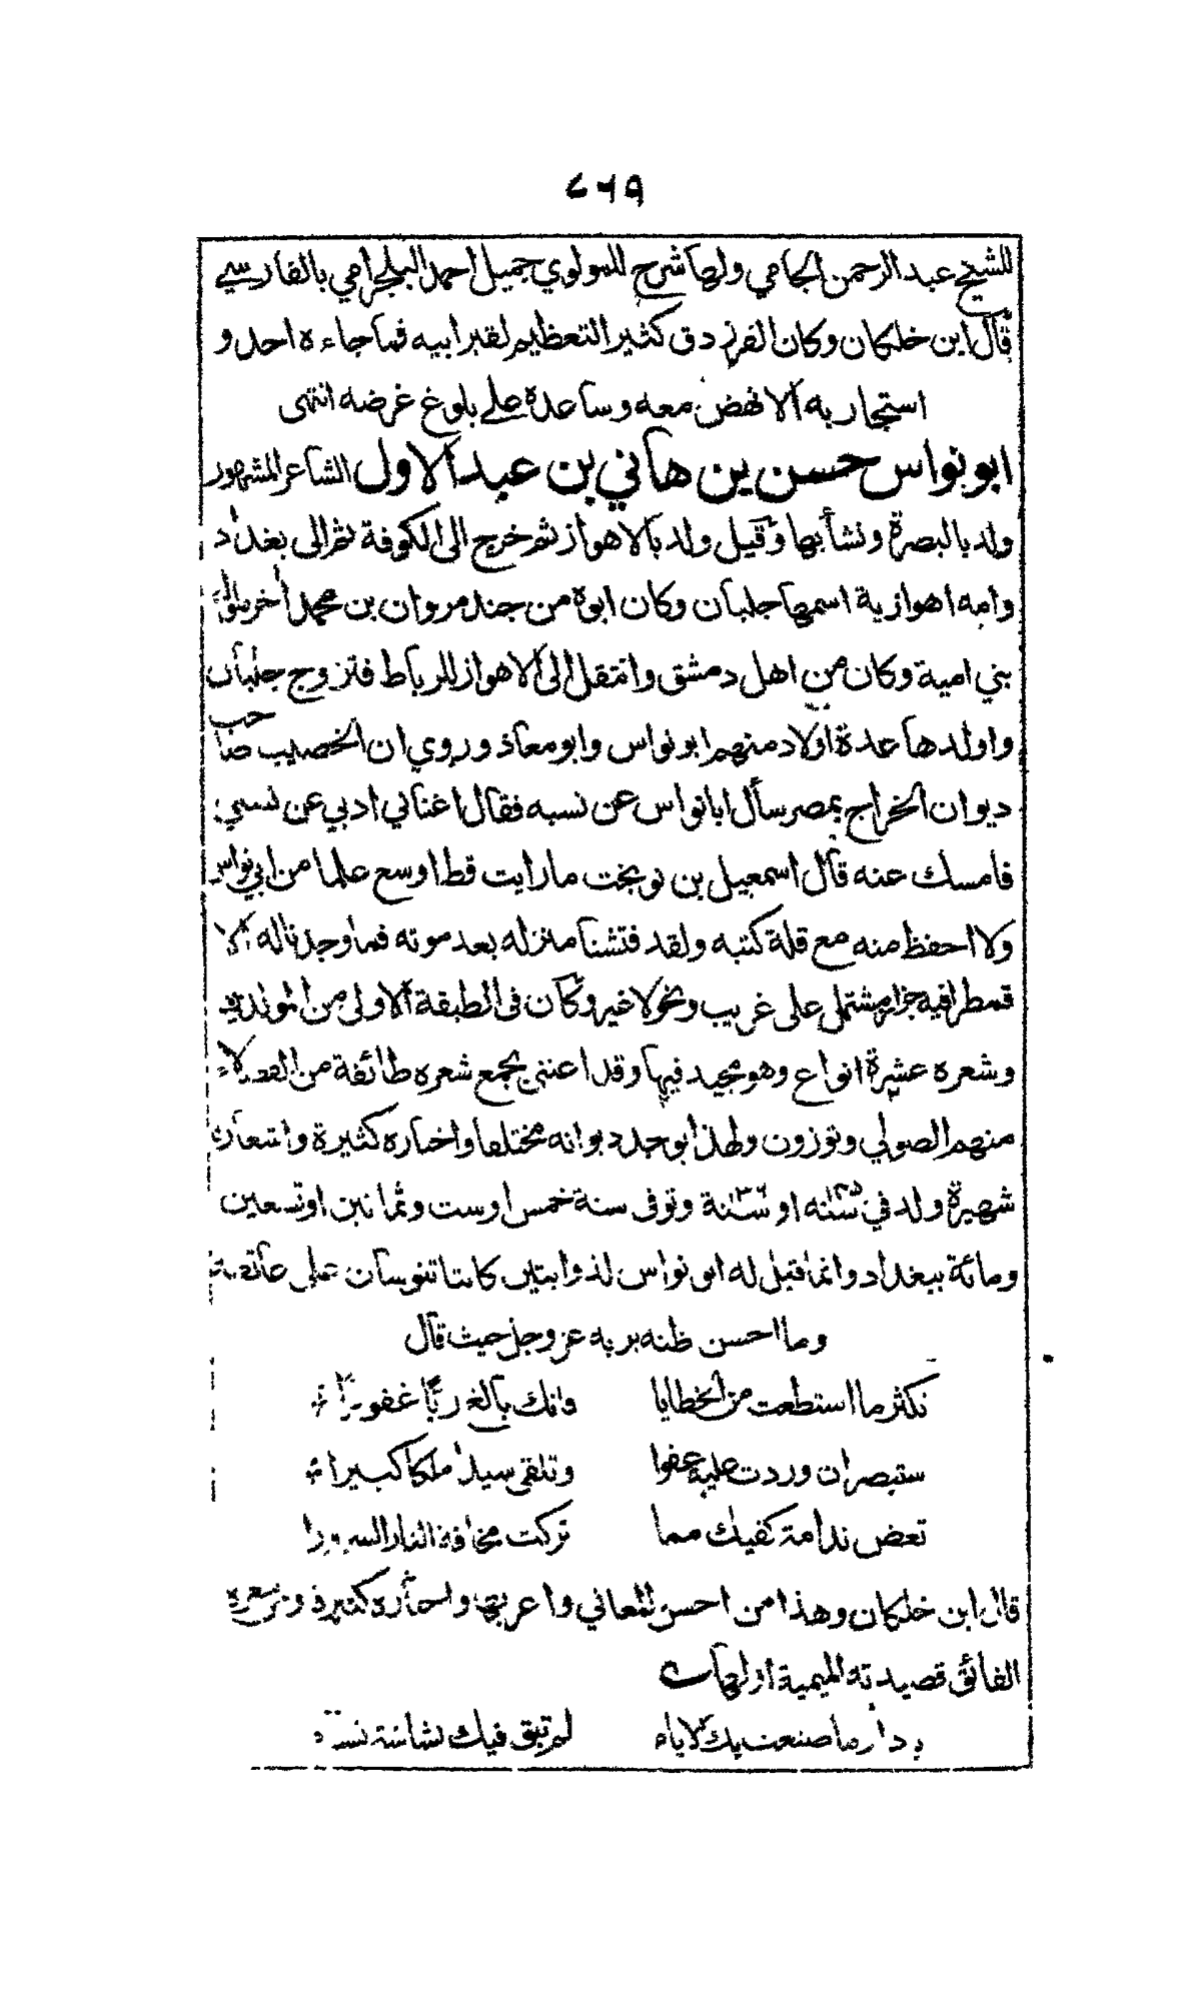 ٧٦٩
للشيخ عبد الرحمن الجامي ولها شرح للمولوي جميل احمد البلجرامي بالفارسي
قال ابن خلكان وكان الفرزدق كثير التعظيم لقبر ابيه فما جاءه احد و
استجار به الا نهض معه وساعده على بلوغ غرضه انتهى
ابو نواس حسن بن هاني بن عبد الاول الشاعر المشهور
ولد بالبصرة ونشأ بها وقيل ولد بالاهواز ثم خرج الى الكوفة ثم الى بغداد
وامه اهوازية اسمها جلبان وكان ابوه من جند مروان بن محمد أخر ملوك
بني امية وكان من اهل دمشق وانتقل الى الاهواز للرباط فتزوج جلبان
واولدها عدة اولاد منهم ابو نواس وابو معاذ وروي ان الخصيب صاحب
ديوان الخراج بمصر سأل ابا نواس عن نسبه فقال اغناني ادبي عن نسبي
فامسك عنه قال اسمعيل بن نوبخت ما رايت قط اوسع علما من ابي نواس
ولا احفظ منه مع قلة كتبه ولقد فتشنا منزله بعد موته فما وجدنا له الا
قمطرا فيه جزء مشتمل على غريب ونحو لا غير وكان في الطبقة الاولى من المولدين
وشعره عشرة انواع وهو مجيد فيها وقد اعتنى بجمع شعره طائفة من الفضلاء
منهم الصولي وتوزون ولهذا يوجد ديوانه مختلفا واخباره كثيرة واشعاره
شهيرة ولد في سنه او سنة وتوفى سنة خمس او ست وثمانين او تسعين
ومائة ببغداد وانما قيل له ابو نواس لذوابتين كانتا تنوسان على عاتقيه
وما احسن ظنه بربه عز وجل حيث قال
تكثر ما استطعت من الخطايا فانك بالغ ربًا غفورا
ستبصر ان وردت عليه عفوا وتلقى سيدا ملكا كبيرا
تعض ندامة كفيك مما تركت مخافة النار السرورا
قال ابن خلكان وهذا من احسن المعاني واغربها واخباره كثيرة ومن شعره
الفائق قصيدته الميمية اولها
يا دار ما صنعت بك الايام لم تبق فيك بشاشة